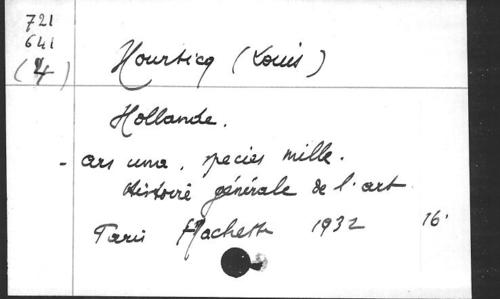 721
641
(4)
Hourticq (Louis)
Hollande.
- ars una, species mille.
Histoire générale de l'art
Paris Hachette 1932 16'